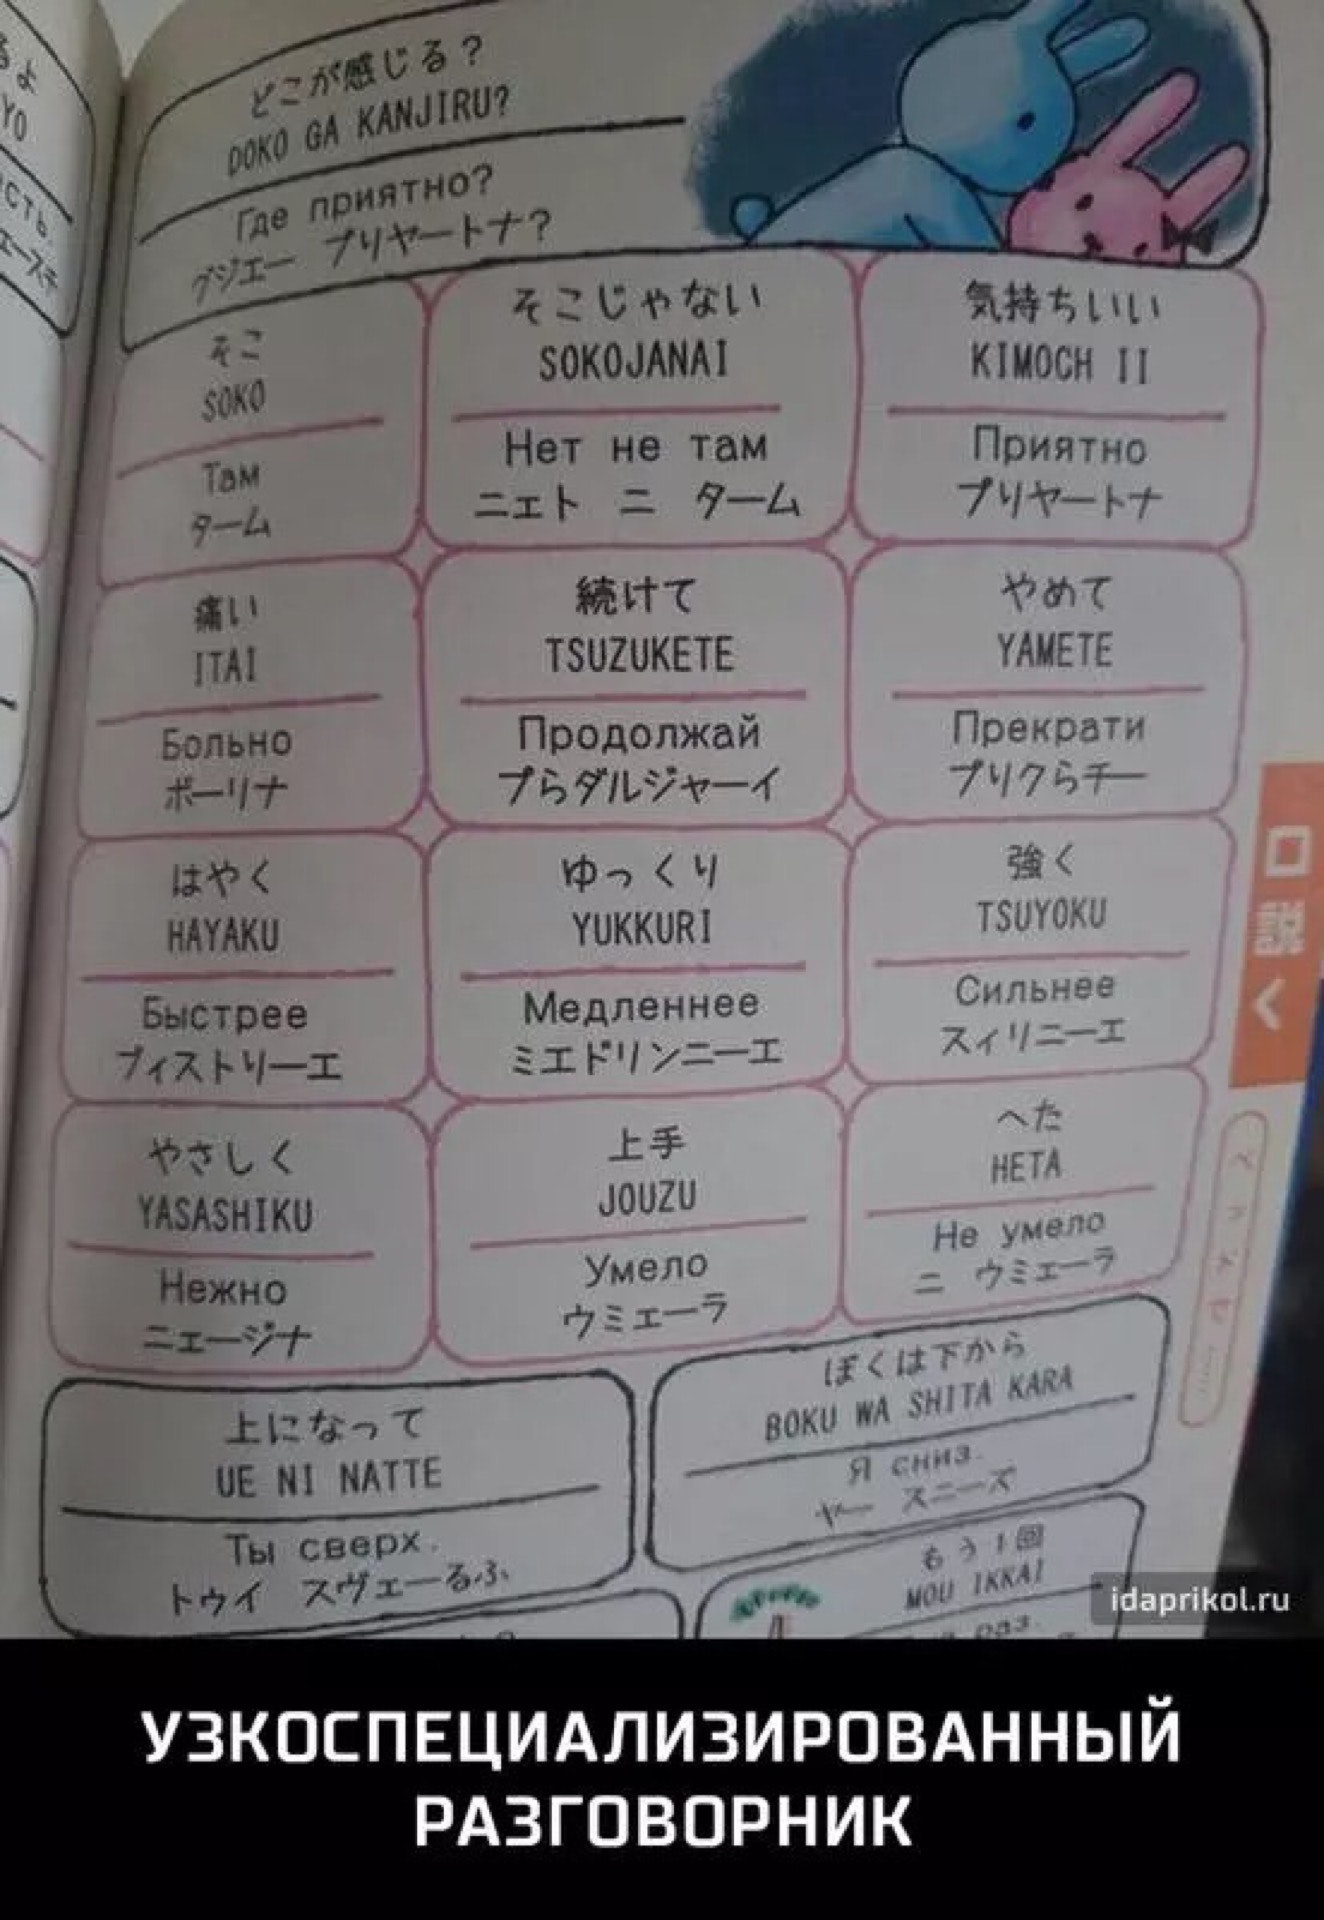 るよ
YO
сть.
エーステ
どこが感じる？
DOKO GA KANJIRU?
Где приятно?
グジェー プリヤートナ？
そこ
SOKO
Там
ターム
そこじゃない
SOKOJANAI
Нет не там
ニェト ニ ターム
気持ちいい
KIMOCH II
Приятно
プリヤートナ
痛い
ITAI
Больно
ボーリナ
続けて
TSUZUKETE
Продолжай
プらダルジャーイ
やめて
YAMETE
Прекрати
プリクらチー
はやく
HAYAKU
Быстрее
ブィストリーエ
ゆっくり
YUKKURI
Медленнее
ミエドリンニーエ
強く
TSUYOKU
Сильнее
スィリニーエ
やさしく
YASASHIKU
Нежно
ニェージナ
上手
JOUZU
Умело
ウミェーラ
へた
HETA
Не умело
ニ ウミェーラ
上になって
UE NI NATTE
Ты сверх.
トゥイ スヴェーるふ
ぼくは下から
BOKU WA SHITA KARA
Я сниз.
ヤー スニーズ
もう1回
MOU IKKAI
раз.
口説く
idaprikol.ru
УЗКОСПЕЦИАЛИЗИРОВАННЫЙ
РАЗГОВОРНИК